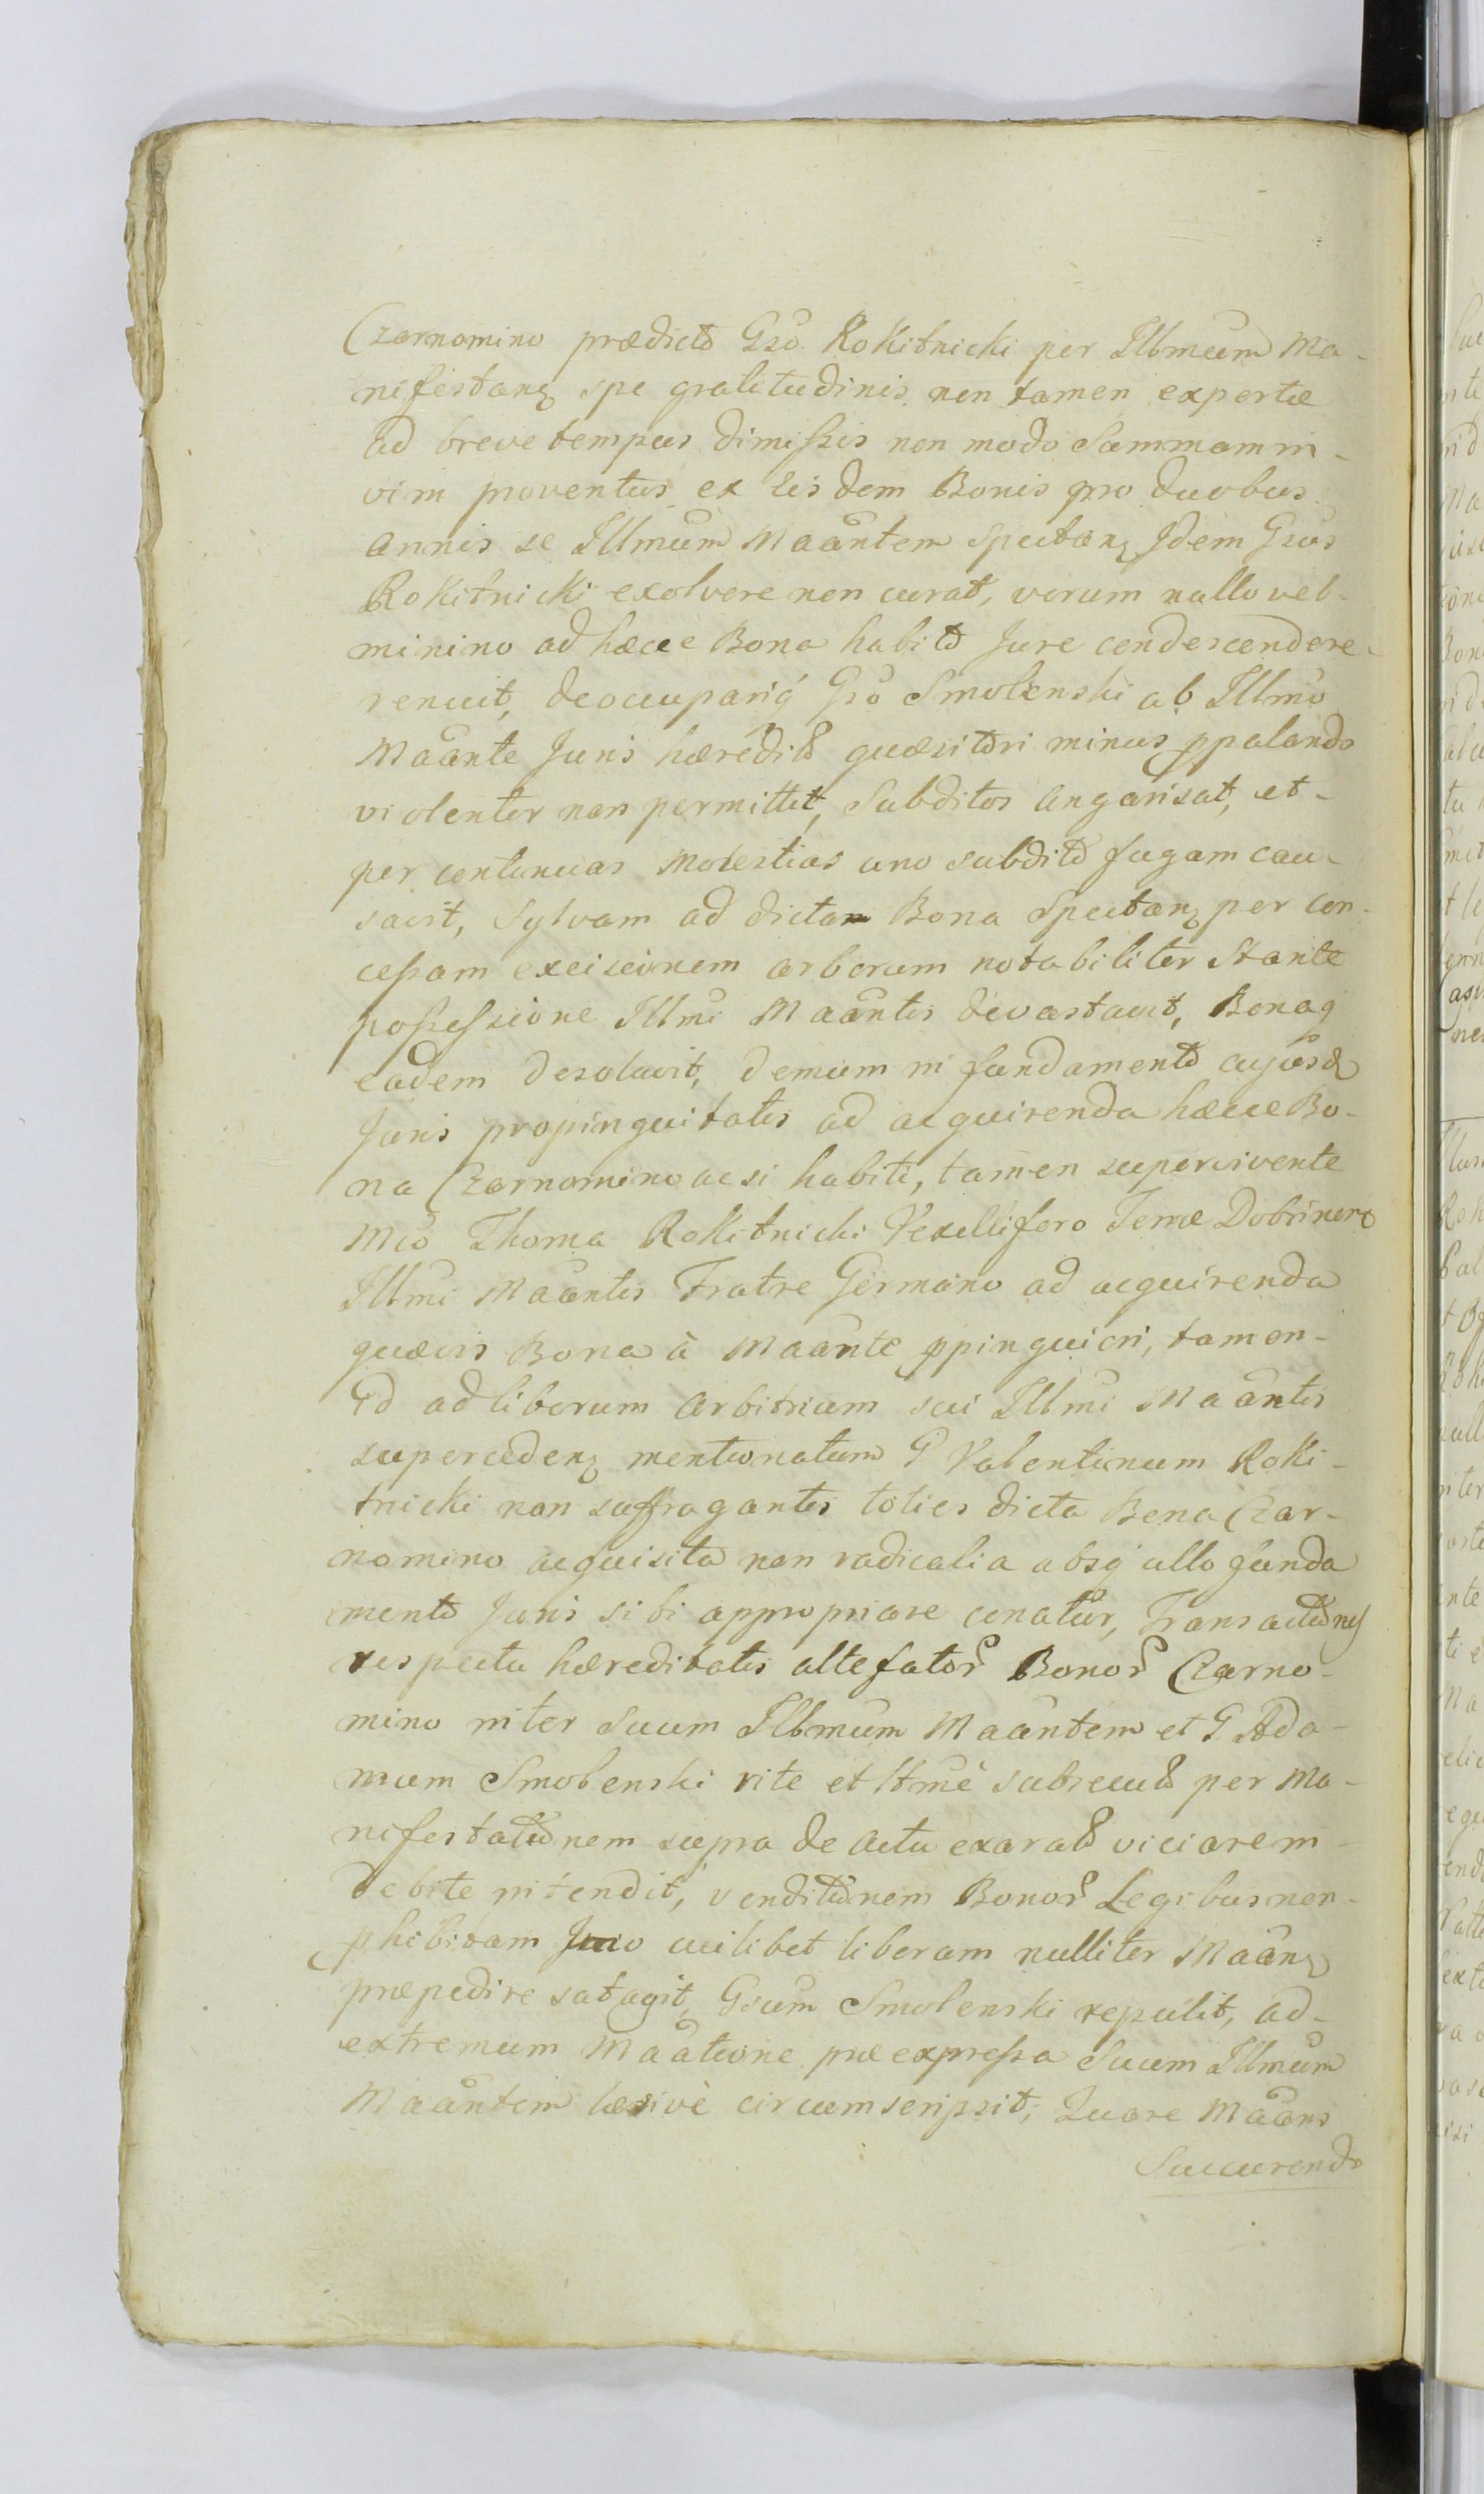 Czarnomino prædicto Gso Rokitnicki per Illmum Ma-
nifestanz spe gratitudinis non tamen expertæ
ad breve tempus dimissis non modo Summam in-
vim proventus ex iis dem Bonis pro duobus
annis se Illmum Maantem spectanz Idem Gsus
Rokitnicki exolvere non curat, verum nullo vel-
minimo ad hæcce Bona habito Jure condescendere
renuit, deoccupariq Gso Smolenski ab Illmo
Maante Juris hæredit quæsitori minus ppalando
violenter non permittit, Subditos angarisat, et-
per continuas molestias uno subdito fugam cau-
savit, Sylvam ad dicta Bona spectanz per con-
cessam excisionem arborum notabiliter stante
possessione Illmi Maantis devastavit, Bonaq
eadem desolavit, demum in fundamento cujusd
Juris propinquitatis ad acquirenda hæcce Bo-
na Czarnomino acsi habiti, tamen supervivente
Mco Thoma Rokitnicki Vexillifero Terræ Dobrinen
Illmi Maantis Fratre Germano ad acquirenda
quævis Bona à Maante ppinquiori, tamen-
id ad liberum arbitrium sui Illmi Maantis
supercedenz mentionatum G Valentinum Roki-
tnicki non suffragantis toties dicta Bona Czar-
nomino acquisita non radicalia absq ullo funda
mento Juris sibi appropriare conatur, Transactiones
respectu hæreditatis altefator Bonor Czarno-
mino inter Suum Illmum Maantem et G Ada-
mum Smolenski rite et ltmè subsecut per Ma-
nifestationem supra de actu exarat viciare in-
debite intendit, venditionem Bonor Legibus non-
phibitam Imo cuilibet liberam nulliter Maanz
præpedire satagit, Gsum Smolenski repulit, ad-
extremum Maatione præexpressa Suum Illmum
Maantem læsivè circumscripsit; Quare Maans
Succurendo